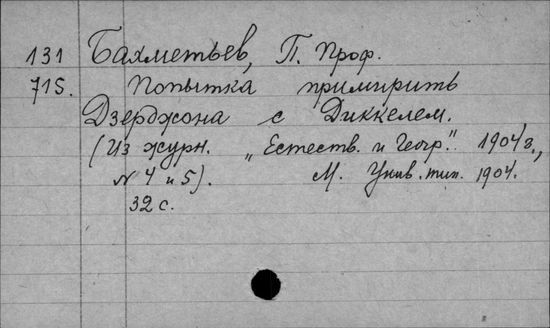 131 Бахметьев, П. Проф.
715. Попытка примирить
Дзерджона с Диккелем.
(Из журн. „Естеств. и Геогр." 1904 г.,
№ 4 и 5). М. Унив. тип. 1904.
32 с.